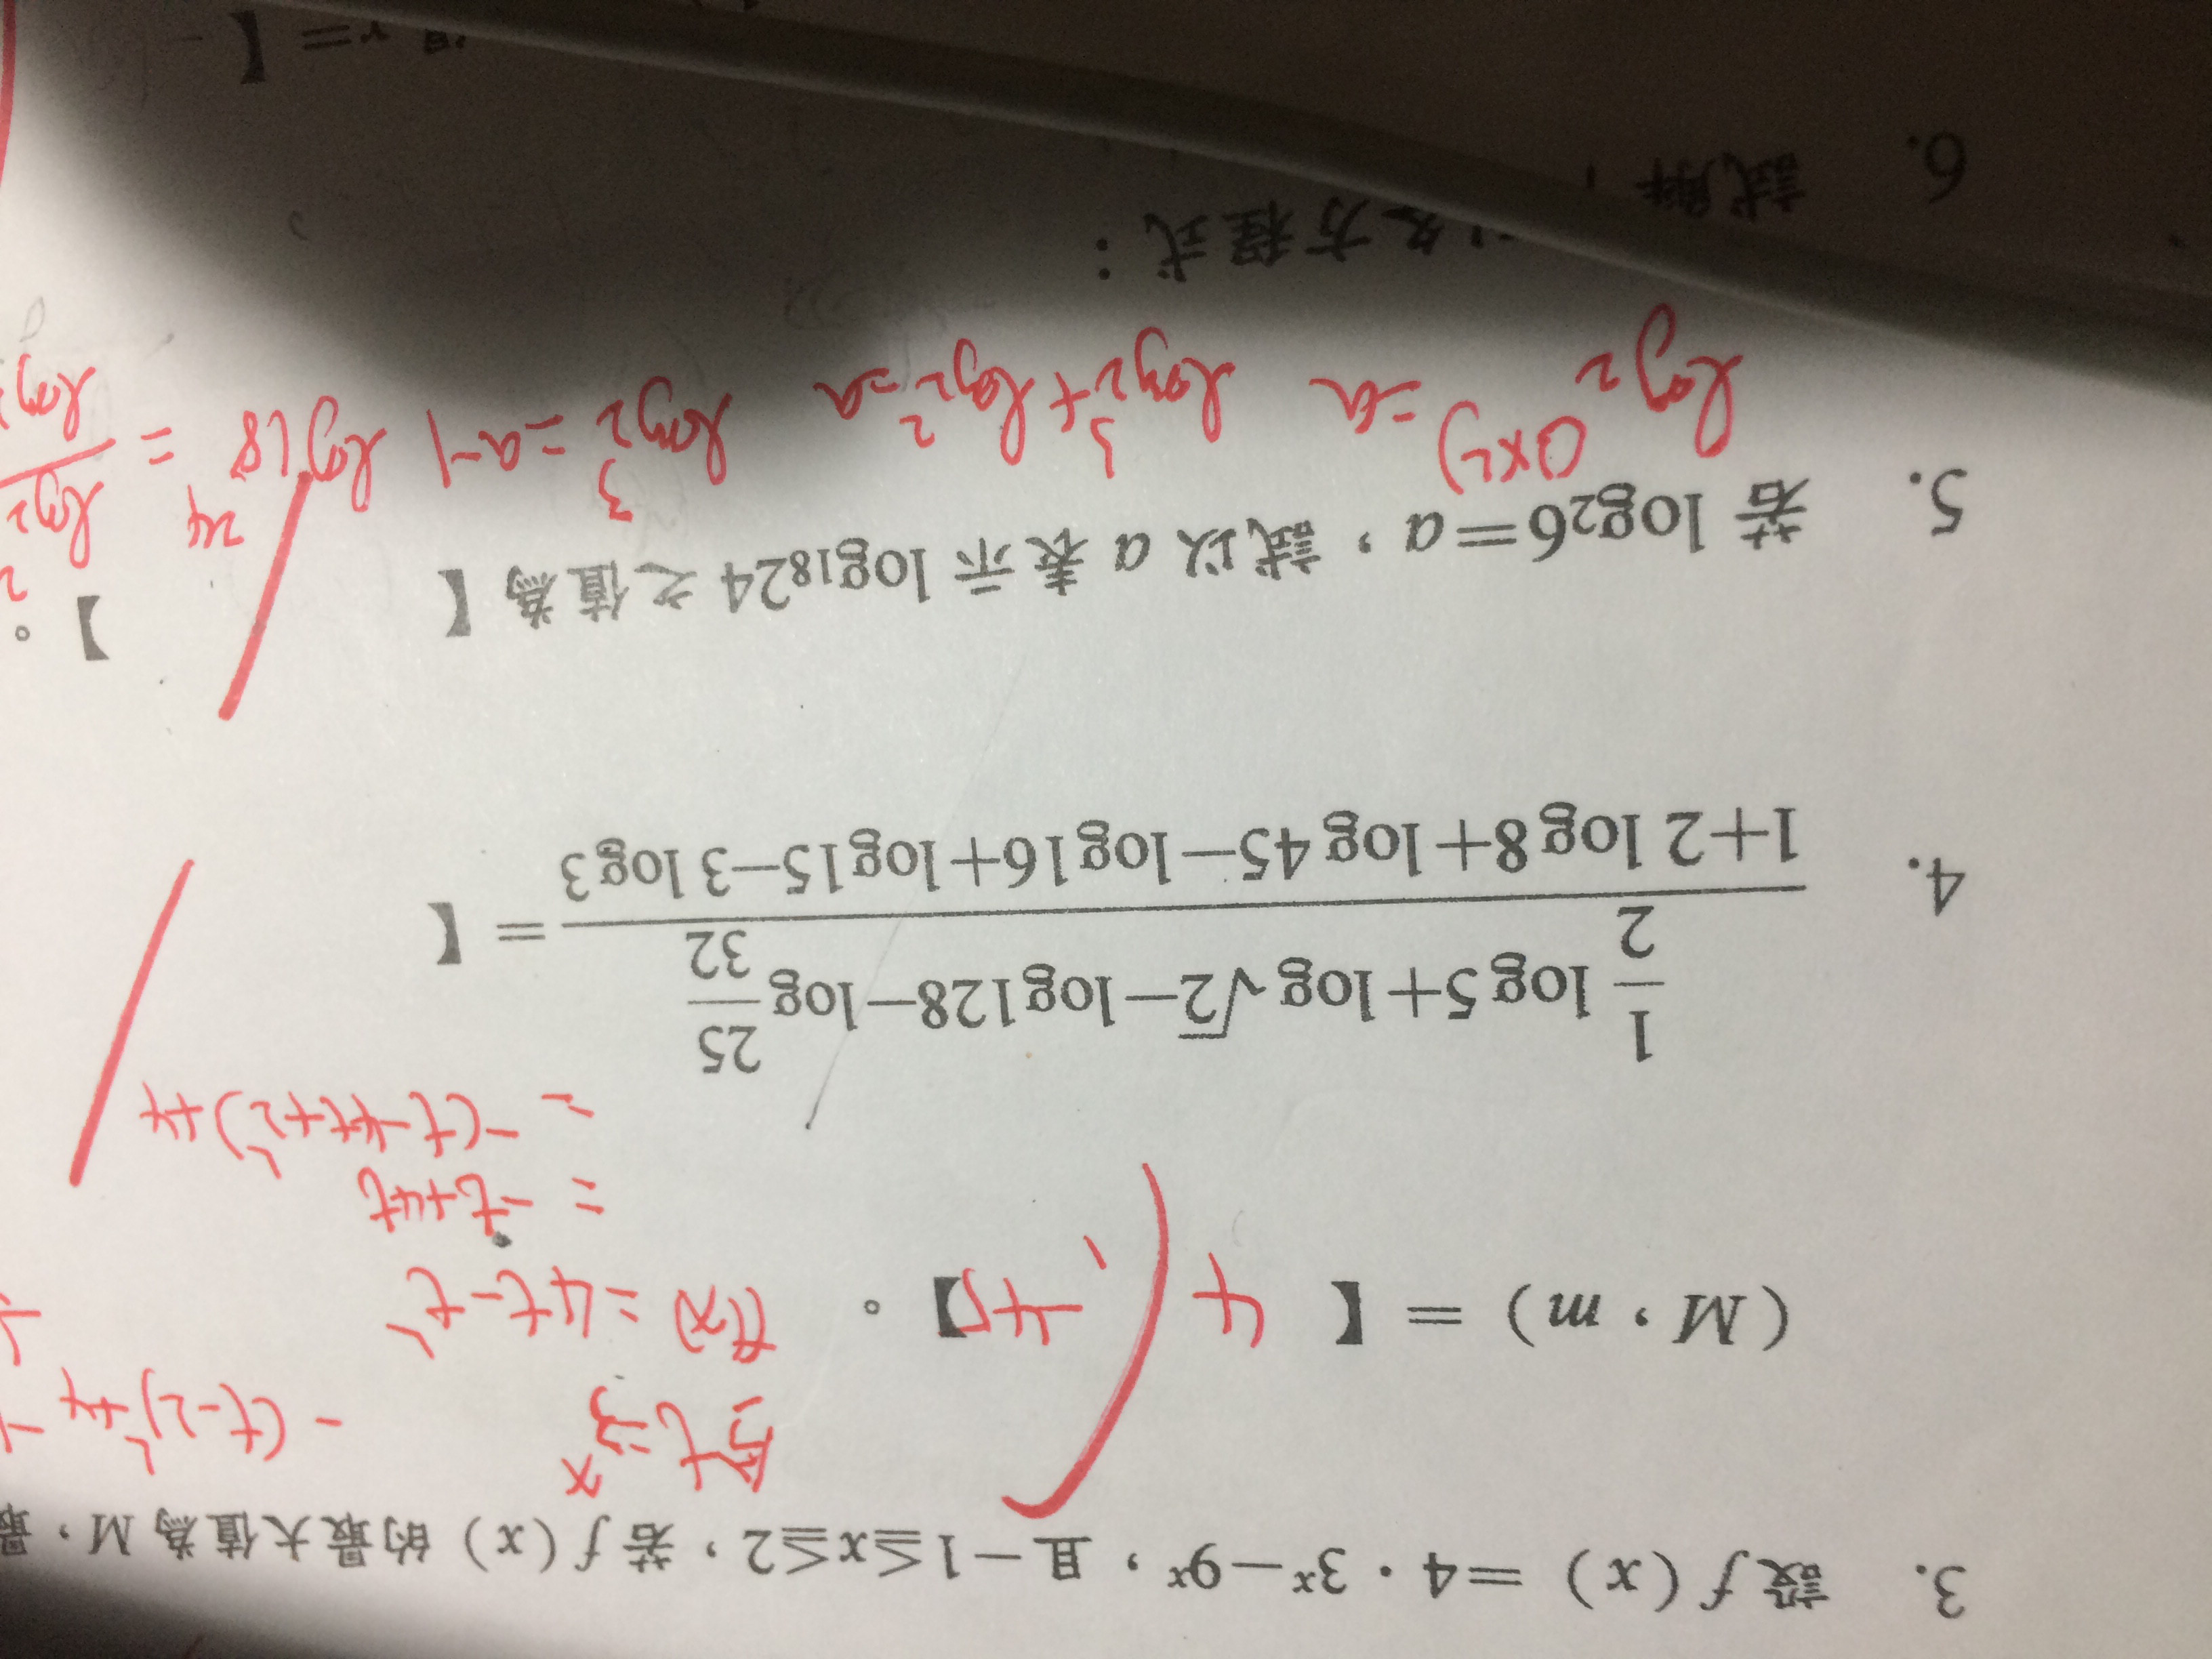 3. 設 f(x)=4·3ˣ−9ˣ，且−1≦x≦2，若 f(x) 的最大值為 M，最
另t=3ˣ -(t-2)²+4
(M，m)=【 4，-45】。 f(x)=4t-t²
= -t²+4t
= -(t²-4t+2²)+4
4. \frac{\frac{1}{2}log5+log√2−log128−log\frac{25}{32}}{1+2log8+log45−log16+log15−3log3}=【
5. 若 log₂6=a，試以 a 表示 log₁₈24 之值為【 】。
log₂(3×2)=a log₂3+log₂2=a log₂3=a-1 log18 24 = \frac{log₂}{log₂}
6. 試解 方程式：
r=【